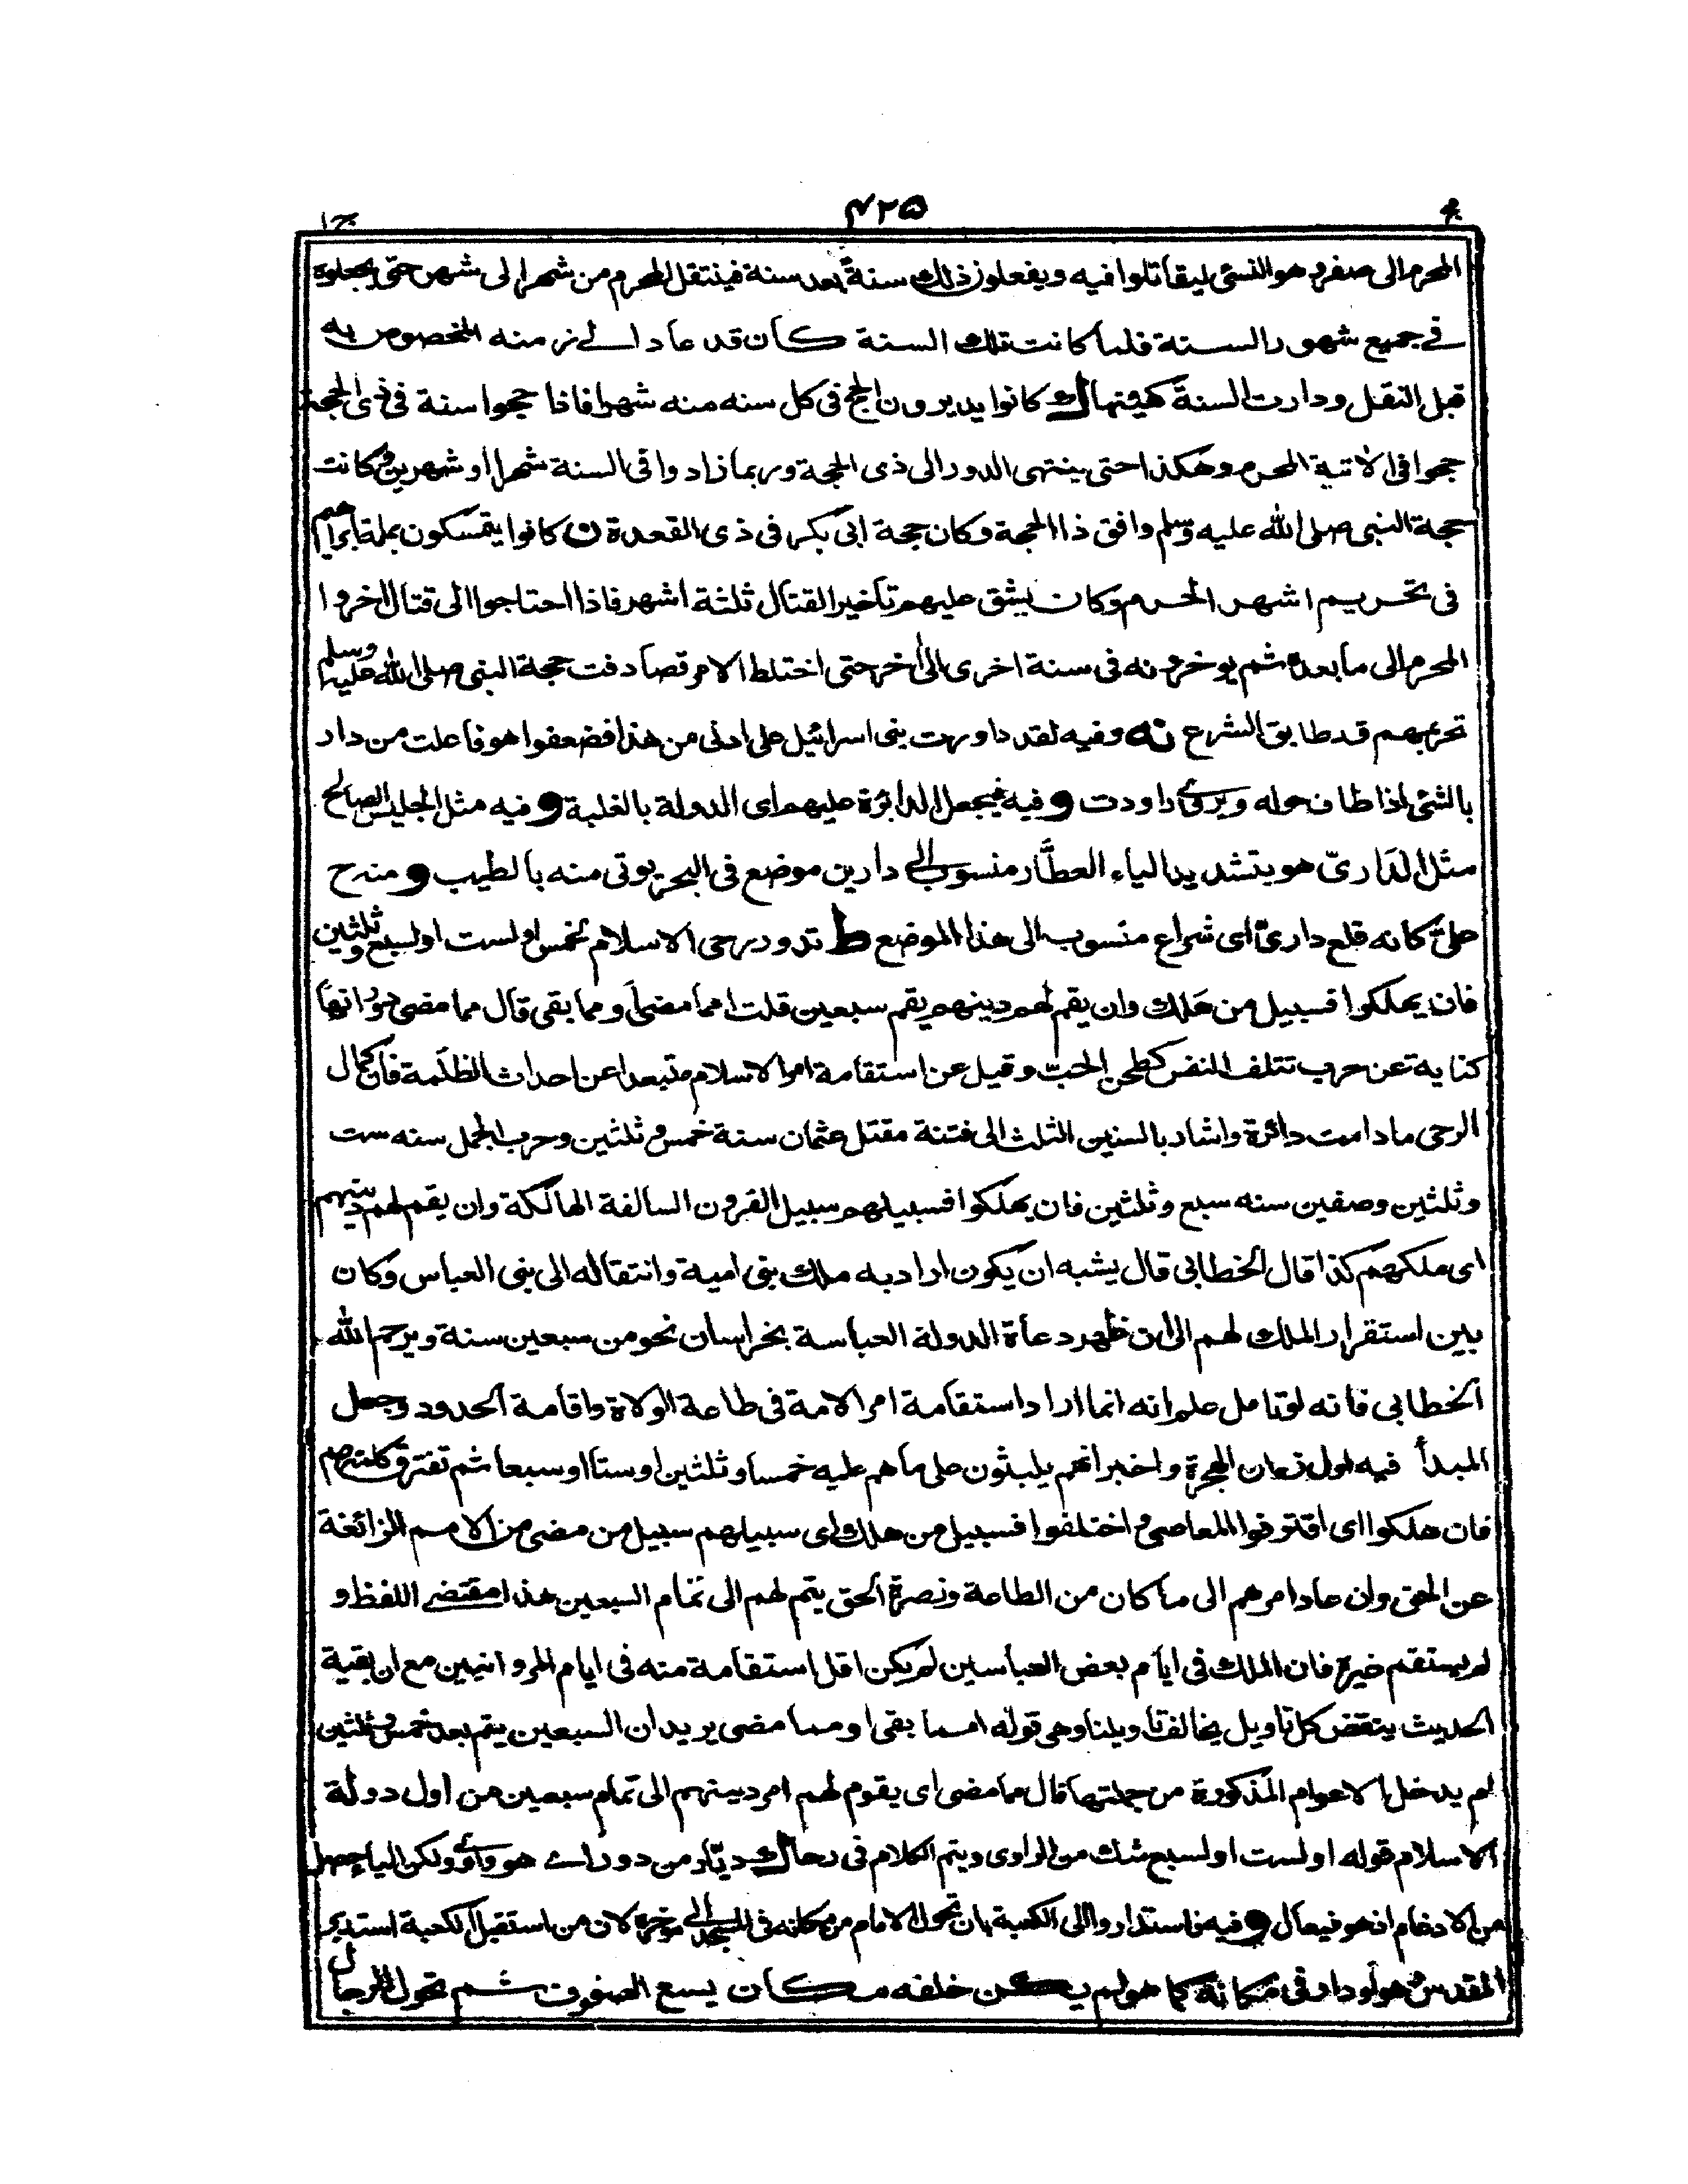 ۴۲۵
المحرم الى صفر وهو النسئ ليقاتلوا فيه ويفعلون ذلك سنة بعد سنة فينتقل المحرم من شهر الى شهر حتى يجعلوه
في جميع شهور السنة فلما كانت تلك السنة كان قد عاد الى زمنه المخصوص به
قبل النقل ودارت السنة كهيئتها ك كانوا يديرون الحج فى كل سنه منه شهرا فاذا حجوا سنة فى ذى الحجة
حجوا فى الاتية المحرم وهكذا حتى ينتهى الدور الى ذى الحجة وربما زادوا فى السنة شهرا او شهرين وكانت
حجة النبى صلى الله عليه وسلم وافق ذا الحجة وكان حجة ابى بكر فى ذى القعدة ن كانوا يتمسكون بملة ابراهيم
فى تحريم اشهر الحرم وكان يشق عليهم تأخير القتال ثلثة اشهر فاذا احتاجوا الى قتال اخروا
المحرم الى ما بعده ثم يوخرونه فى سنة اخرى الى اخر حتى اختلط الامر فصادفت حجة النبى صلى الله عليه وسلم
تحريمهم قد طابق الشرع نه وفيه لقد داورت بنى اسرائيل على ادنى من هذا فضعفوا هو فاعلت من دار
بالشئ اذا طاف حوله ويروى داودت و فيه فيجعل الدائرة عليهم اى الدولة بالغلبة و فيه مثل الجليس الصالح
مثل الدارىّ هو بتشديد الياء العطّار منسوب الى دارين موضع فى البحر يوتى منه بالطيب و منه ح
علىّ كانه قلع دارىّ اى شراع منسوب الى هذا الموضع ط تدور رحى الاسلام لخمس او لست او لسبع وثلثين
فان يهلكوا فسبيل من هلك وان يقم لهم دينهم يقم سبعين قلت امما مضى او مما بقى قال مما مضى دورانها
كناية عن حرب تتلف النفس كطحن الحب وقيل عن استقامة امر الاسلام متبعدا عن احداث الظلمة فان كمال
الرحى ما دامت دائرة واشار بالسنين الثلث الى فتنة مقتل عثمان سنة خمس وثلثين وحرب الجمل سنه ست
وثلثين وصفين سنه سبع وثلثين فان يهلكوا فسبيلهم سبيل القرون السالفة الهالكة وان يقم لهم دينهم
اى ملكهم كذا قال الخطابى قال يشبه ان يكون اراد به ملك بنى امية وانتقاله الى بنى العباس وكان
بين استقرار الملك لهم الى ان ظهر دعاة الدولة العباسة بخراسان نحو من سبعين سنة ويرحم الله
الخطابى فانه لو تامل علم انه انما اراد استقامة امر الامة فى طاعة الولاة واقامة الحدود وجعل
المبدأ فيه اول زمان الهجرة واخبر انهم يلبثون على ما هم عليه خمسا وثلثين او ستا او سبعا ثم تفترق كلمتهم
فان هلكوا اى اقترفوا المعاصى واختلفوا فسبيل من هلك اى سبيلهم سبيل من مضى من الامم الزائغة
عن الحق وان عاد امرهم الى ما كان من الطاعة ونصرة الحق يتم لهم الى تمام السبعين هذا مقتضى اللفظ و
لم يستقم غيره فان الملك فى ايام بعض العباسين لم يكن اقل استقامة منه فى ايام المروانيين مع ان بقية
الحديث ينقض كل تاويل يخالف تاويلنا وهى قوله امما بقى او مما مضى يريد ان السبعين يتم بعد خمس وثلثين
لم يدخل الاعوام المذكورة من جملتها قال مما مضى اى يقوم لهم امر دينهم الى تمام سبعين من اول دولة
الاسلام قوله او لست او لسبع شك من الراوى ويتم الكلام فى رحا ك ديّار من دور اے هو واوى ولكن الياء حصل
من الادغام اذ هو فيعال و فيه فاستداروا الى الكعبة بان تحول الامام من مكانه فى المسجد الى موخره لان من استقبل الكعبة استدبر
المقدس وهو لو دار فى مكانه كما هو لم يكن خلفه مكان يسع الصفوف ثم تحول الرجال